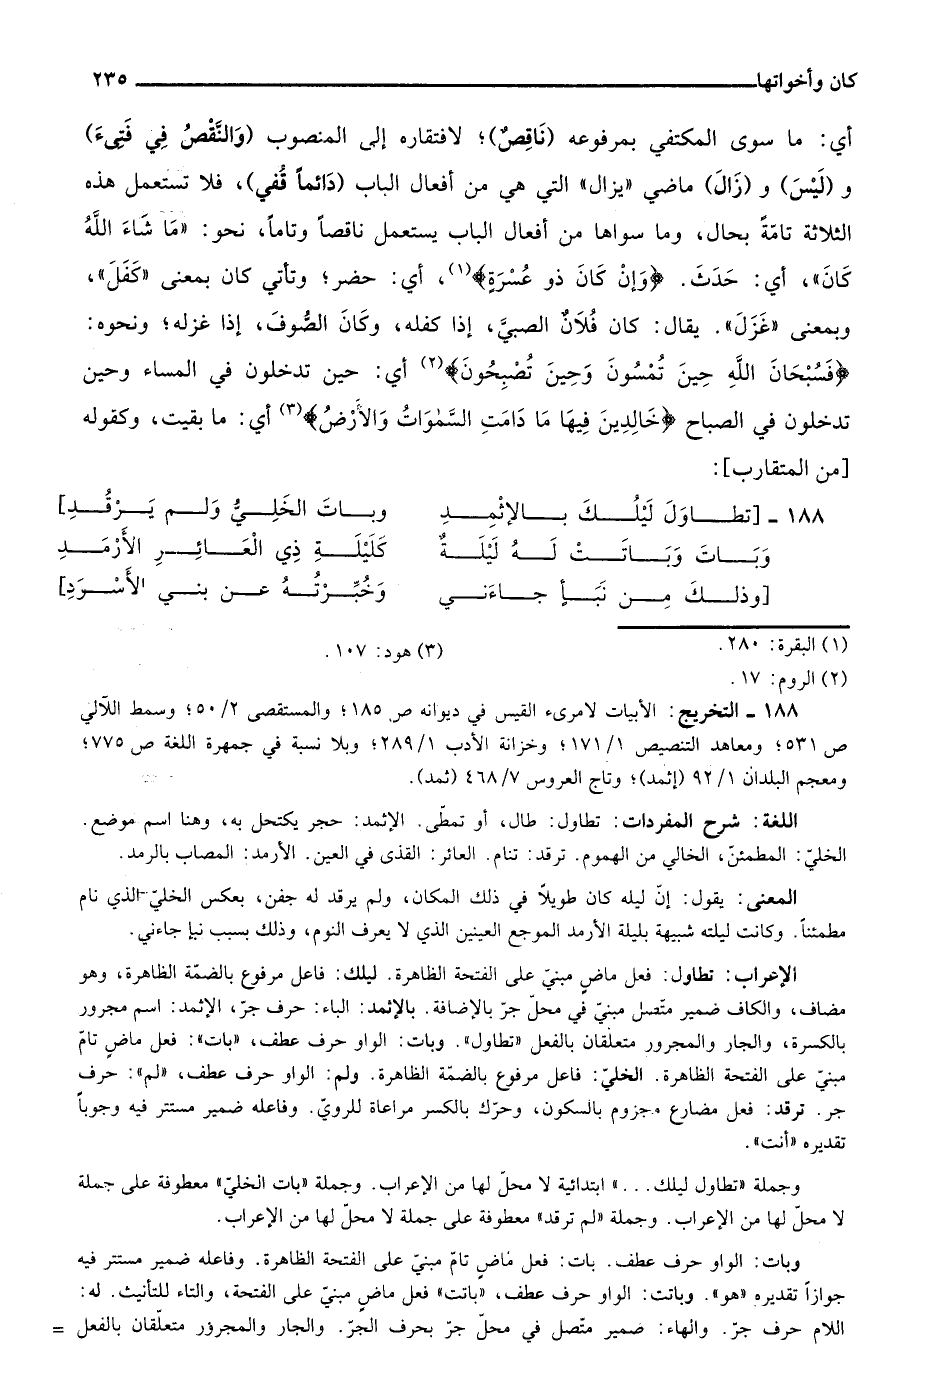 كان وأخواتها ــــــــــــــــــــ ٢٣٥
أي: ما سوى المكتفي بمرفوعه (نَاقِصٌ)؛ لافتقاره إلى المنصوب (وَالنَّقْصُ فِي فَتِىءَ)
و (لَيْسَ) و (زَالَ) ماضي «يزال» التي هي من أفعال الباب (دَائماً قُفي)، فلا تستعمل هذه
الثلاثة تامّةً بحال، وما سواها من أفعال الباب يستعمل ناقصاً وتاماً، نحو: «مَا شَاءَ اللَّهُ
كَانَ»، أي: حَدَثَ. ﴿وَإنْ كَانَ ذو عُسْرَةٍ﴾(١)، أي: حضر؛ وتأتي كان بمعنى «كَفَلَ»،
وبمعنى «غَزَلَ». يقال: كان فُلَانٌ الصبيَّ، إذا كفله، وكَانَ الصُّوفَ، إذا غزله؛ ونحوه:
﴿فَسُبْحَانَ اللَّهِ حِينَ تُمْسُونَ وَحِينَ تُصْبِحُونَ﴾(٢) أي: حين تدخلون في المساء وحين
تدخلون في الصباح ﴿خَالِدِينَ فِيهَا مَا دَامَتِ السَّمٰوَاتُ وَالأَرْضُ﴾(٣) أي: ما بقيت، وكقوله
[من المتقارب]:
١٨٨ - [تطـــاوَلَ لَيْلُـــكَ بـــالإثْمِـــدِ وبـــاتَ الخَلِـــيُّ وَلـــم يَـــرْقُـــدِ]
وَبَـــاتَ وَبَـــاتَـــتْ لَـــهُ لَيْلَـــةٌ كَلَيْلَـــةِ ذِي الْعَـــائِـــرِ الأَرْمَـــدِ
[وذلـــكَ مِـــن نَبَـــأٍ جـــاءَنـــي وَخُبِّـــرْتُـــهُ عـــن بنـــي الأَسْـــوَدِ]
(١) البقرة: ٢٨٠.
(٣) هود: ١٠٧.
(٢) الروم: ١٧.
١٨٨ - التخريج: الأبيات لامرىء القيس في ديوانه ص ١٨٥؛ والمستقصى ٢/ ٥٠؛ وسمط اللآلي
ص ٥٣١؛ ومعاهد التنصيص ١/ ١٧١؛ وخزانة الأدب ١/ ٢٨٩؛ وبلا نسبة في جمهرة اللغة ص ٧٧٥؛
ومعجم البلدان ١/ ٩٢ (إثمد)؛ وتاج العروس ٧/ ٤٦٨ (ثمد).
اللغة: شرح المفردات: تطاول: طال، أو تمطّى. الإثمد: حجر يكتحل به، وهنا اسم موضع.
الخليّ: المطمئنّ، الخالي من الهموم. ترقد: تنام. العائر: القذى في العين. الأرمد: المصاب بالرمد.
المعنى: يقول: إنّ ليله كان طويلاً في ذلك المكان، ولم يرقد له جفن، بعكس الخليّ الذي نام
مطمئناً. وكانت ليلته شبيهة بليلة الأرمد الموجع العينين الذي لا يعرف النوم، وذلك بسبب نبإ جاءني.
الإعراب: تطاول: فعل ماضٍ مبنيّ على الفتحة الظاهرة. ليلك: فاعل مرفوع بالضمّة الظاهرة، وهو
مضاف، والكاف ضمير متّصل مبنيّ في محلّ جرّ بالإضافة. بالإثمد: الباء: حرف جرّ، الإثمد: اسم مجرور
بالكسرة، والجار والمجرور متعلقان بالفعل «تطاول». وبات: الواو حرف عطف، «بات»: فعل ماضٍ تامّ
مبنيّ على الفتحة الظاهرة. الخليّ: فاعل مرفوع بالضمّة الظاهرة. ولم: الواو حرف عطف، «لم»: حرف
جر. ترقد: فعل مضارع مجزوم بالسكون، وحرّك بالكسر مراعاة للرويّ. وفاعله ضمير مستتر فيه وجوباً
تقديره «أنت».
وجملة «تطاول ليلك...» ابتدائية لا محلّ لها من الإعراب. وجملة «بات الخليّ» معطوفة على جملة
لا محلّ لها من الإعراب. وجملة «لم ترقد» معطوفة على جملة لا محلّ لها من الإعراب.
وبات: الواو حرف عطف. بات: فعل ماضٍ تامّ مبنيّ على الفتحة الظاهرة. وفاعله ضمير مستتر فيه
جوازاً تقديره «هو». وباتت: الواو حرف عطف، «باتت» فعل ماضٍ مبنيّ على الفتحة، والتاء للتأنيث. له:
اللام حرف جرّ. والهاء: ضمير متّصل في محلّ جرّ بحرف الجرّ. والجار والمجرور متعلّقان بالفعل =